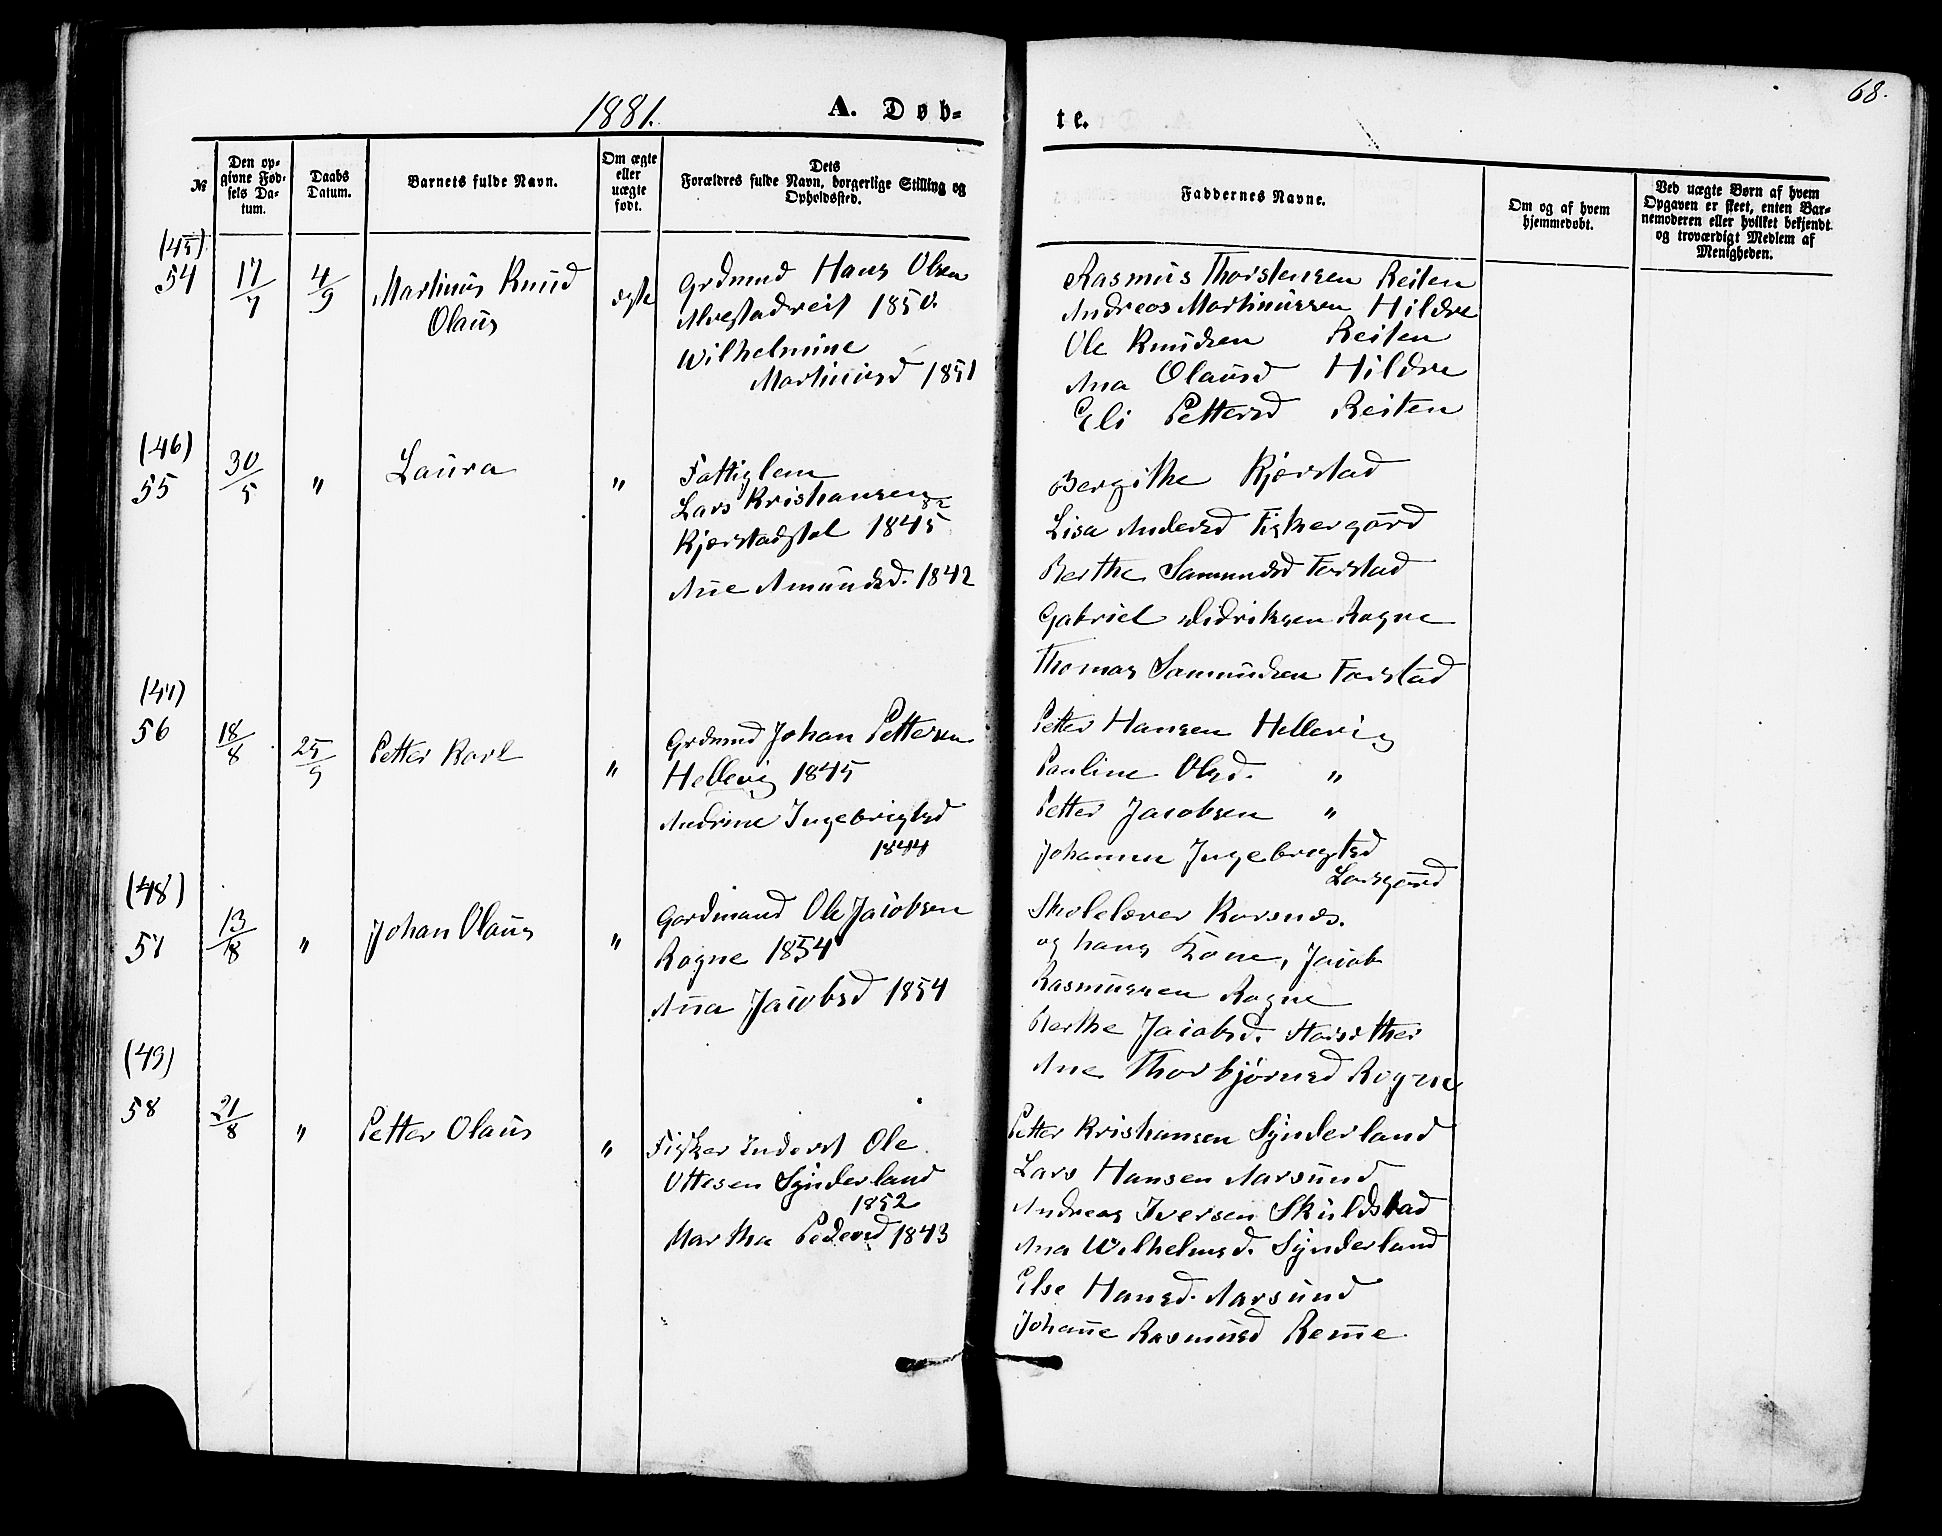 1881.
A. Døb=
te.
68.
№
Den op=
givne Fød=
sels Da=
tum.
Daabs
Datum.
Barnets fulde Navn.
Om ægte
eller
uægte
født.
Dets
Forældres fulde Navn, borgerlige Stilling og
Opholdssted.
Faddernes Navne.
Om og af hvem
hjemmedøbt.
Ved uægte Børn af hvem
Opgaven er skeet, enten Bar=
nemoderen eller hvilket bekjendt
og troværdigt Medlem af
Menigheden.
(45)
54
17/7
4/9
Martinus Knud
Olaus
ægte
Grdmnd Hans Olsen
Alvestadreit 1850.
Wilhelmine
Martinusd 1851
Rasmus Thorstensen Reiten
Andreas Martinussen Hildre
Ole Knudsen Reiten
Ana Olausd Hildre
Eli Pettersd Reiten
(46)
55
30/5
"
Laura
"
Fattiglem
Lars Kristiansen
Kjærstadstol 1845
Ane Amundsd. 1842
Bergithe Kjærstad
Lisa Andersd Fiskergård
Berthe Samundsd Farstad
Gabriel Didriksen Rogne
Thomas Samundsen Farstad
(47)
56
18/8
25/9
Petter Karl
"
Grdmnd Johan Pettersen
Hellevig 1845
Andrine Ingebrigtsd
1844
Petter Hansen Hellevig
Pauline Olsd. "
Petter Jacobsen "
Johanne Ingebrigtsd
Larsgård
(48)
57
13/8
"
Johan Olaus
"
Gardmand Ole Jacobsen
Rogne 1854
Ana Jacobsd 1854
Skolelærer Korsnes.
og hans Kone, Jacob
Rasmussen Rogne
Berthe Jacobsd.
Ane Thorbjørnsd Rogne
(49)
58
21/8
"
Petter Olaus
"
Fisker Inderst Ole
Ottesen Synderland
1852
Martha Pedersd 1843
Petter Kristiansen Synderland
Lars Hansen Aarsund
Andreas Iversen Skuldstad
Ana Wilhelmsd. Synderland
Else Hansd. Aarsund
Johanne Rasmusd Remme